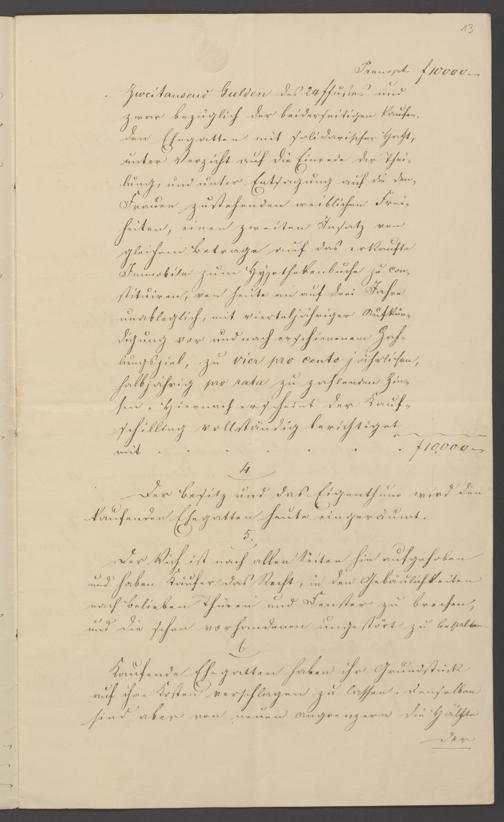 13
Transpt. f 10000.–
Zweitausend Gulden des 24 ffußes und
zwar bezüglich der beiderseitigen kaufen-
den Ehegatten mit solidarischer Haft,
unter Verzicht auf die Einrede der Thei-
lung, und unter Entsagung auf die den
Frauen zustehenden weiblichen Frei-
heiten, einen zweiten Insatz von
gleichem Betrage auf das erkaufte
Immobile zum Hypothekenbuche zu con-
stituiren, von heute an auf drei Jahre
unableglich, mit vierteljähriger Aufkün-
digung vor und nach erschienenem Zah-
lungsziel, zu vier pro cento jährlichen,
halbjährig pro rata zu zahlenden Zin-
sen. Hiernach erscheint der Kauf-
schilling vollständig berichtiget
mit . . . . . . f 10,000.–
4.
Der Besitz und das Eigenthum wird den
kaufenden Ehegatten heute eingeräumt.
5.
Der ist nach allen Seiten hin aufgehoben
und haben Käufer das Recht, in den Gebäulichkeiten
nach Belieben Thüren und Fenster zu brechen,
und die schon vorhandenen ungestört zu behalten.
6.
Kaufende Ehegatten haben ihr Grundstück
auf ihre Kosten verschlagen zu lassen. Denselben
sind aber von neuen angrenzern die Hälfte
der